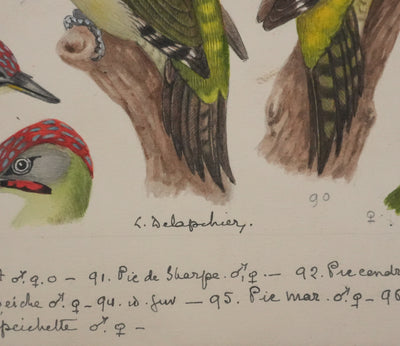 90 ♀
L. Delapchier.
♂.♀.O — 91. Pic de Sharpe. ♂.♀. — 92. Pic cendr
peiche ♂.♀ — 94. id juv — 95. Pic mar. ♂.♀ — 96
peichette ♂.♀ —